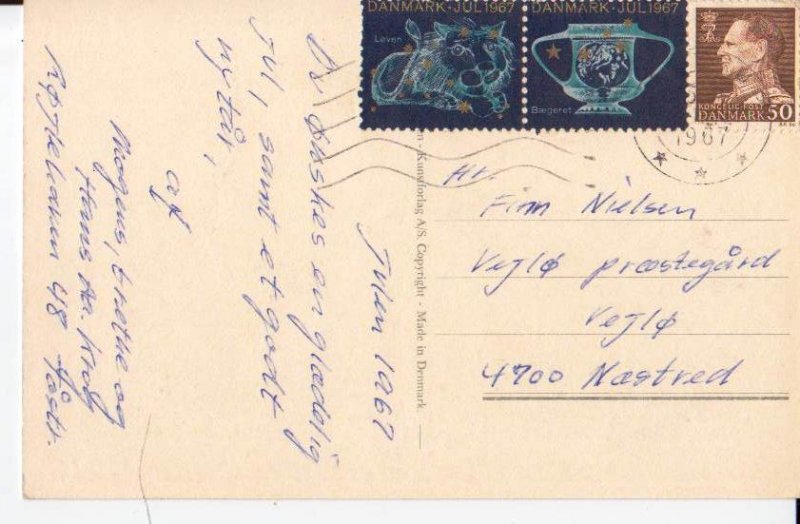 DANMARK·JUL 1967
Løven
DANMARK·JUL 1967
Bægeret
KONGELIG POST
DANMARK 50
1967
Kunstforlag A/S. Copyright - Made in Denmark
Julen 1967
ønskes en glædelig
jul, samt et godt
nytår,
af
Mogens, Grethe og
Hans Aa. Krag
48
Hr.
Finn Nielsen
Vejlø præstegård
Vejlø
4700 Næstved